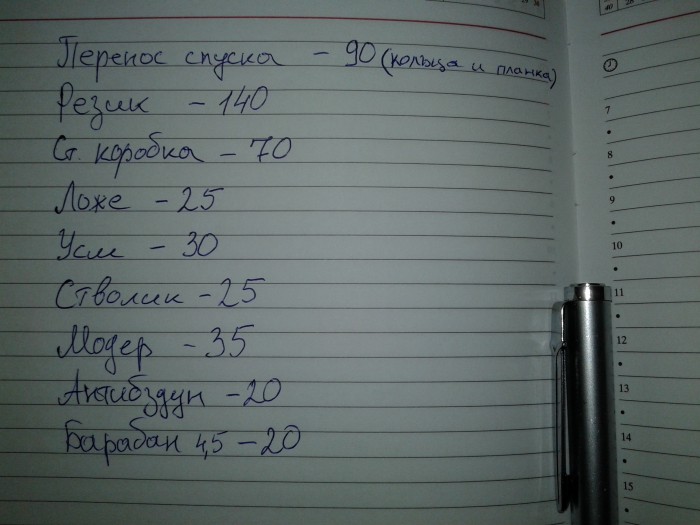 Перенос спуска – 90 (кольца и планка)
Резик – 140
Ст. коробка – 70
Ложе – 25
Усм – 30
Стволик – 25
Модер – 35
Антибздун – 20
Барабан 4,5 – 20
7
8
9
10
11
12
13
14
15